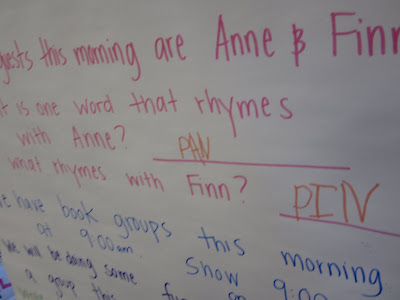 gests this morning are Anne & Finn
t is one word that rhymes
with Anne? PAN
what rhymes with Finn? PIN
e have book groups this morning
at 9:00am. Show 9:00
We will be doing some
a group this